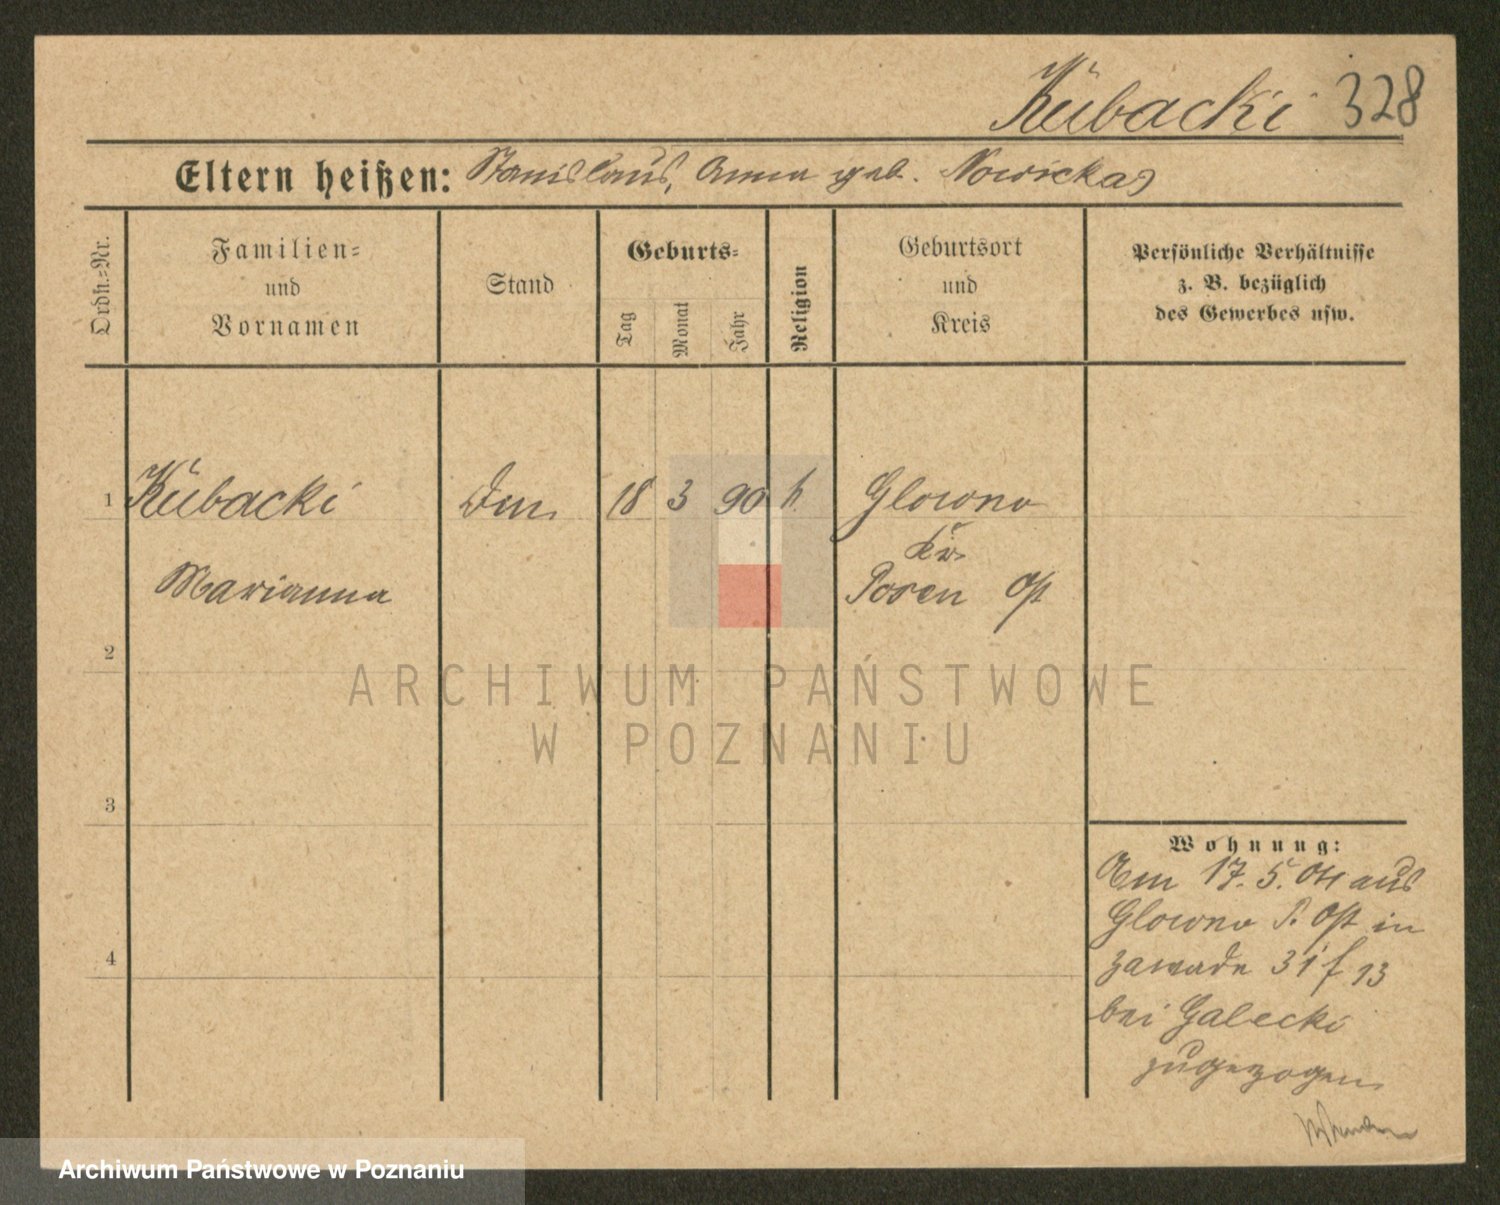 Kubacki 328
Eltern heißen: Stanislaus, Anna geb. Nowicka
Ordn.-Nr.
Familien-
und
Vornamen
Stand
Geburts-
Tag
Monat
Jahr
Religion
Geburtsort
und
Kreis
Persönliche Verhältnisse
z. B. bezüglich
des Gewerbes usw.
1 Kubacki 18 3 90 k. Glowno
Kr.
Marianna Posen Ost
2
3
4
Wohnung:
Am 17. 5. 04 aus
Glowno P. Ost in
Zawade 31 f 13
bei Galecki
zugezogen
ARCHIWUM PAŃSTWOWE
W POZNANIU
Archiwum Państwowe w Poznaniu